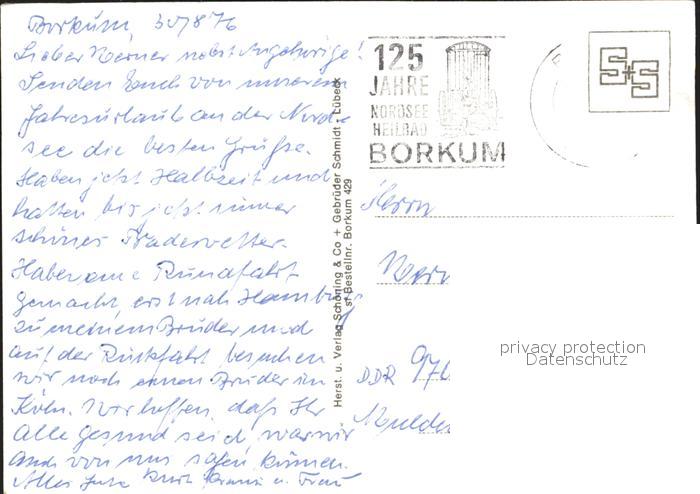 Borkum, 30/8 76
Lieber Werner nebst Angehörige!
Senden Euch von unserem
Jahresurlaub an der Nord-
see die besten Grüße.
Haben jetzt Halbzeit und
hatten bis jetzt immer
schönes Badewetter.
Haben eine Rundfahrt
gemacht, erst nach Hamburg
zu meinem Bruder und
auf der Rückfahrt besuchen
wir noch einen Bruder in
Köln. Wir hoffen, daß Ihr
alle gesund seid, was wir
auch von uns sagen können.
Alles Gute Kurt u. Frau
Herst. u. Verlag Schöning & Co + Gebrüder Schmidt, Lübeck
Bestellnr. Borkum 429
125
JAHRE
NORDSEE
HEILBAD
BORKUM
S+S
Herrn
Wern
DDR 976
Mulde
privacy protection
Datenschutz